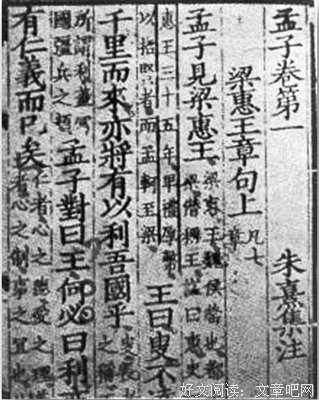 孟子卷第一 朱熹集注
梁惠王章句上 凡七章
孟子見梁惠王 梁惠王魏侯罃也
梁僭稱王諡曰惠史
惠王三十五年卑禮厚幣
以招賢者而孟軻至梁 王曰叟不
千里而來亦將有以利吾國乎
所謂利蓋富
國彊兵之類 孟子對曰王何必曰利
有仁義而已矣 仁者心之德愛之理
者心之制事之宜也
好文阅读：文章吧网